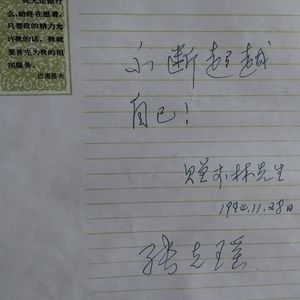 我无论做什
么,始终在想着,
只要我的精力允
许我的话,我就
要首先为我的祖
国服务。
巴甫洛夫
不断超越
自己!
赠木林先生
1994.11.28日
张克瑶